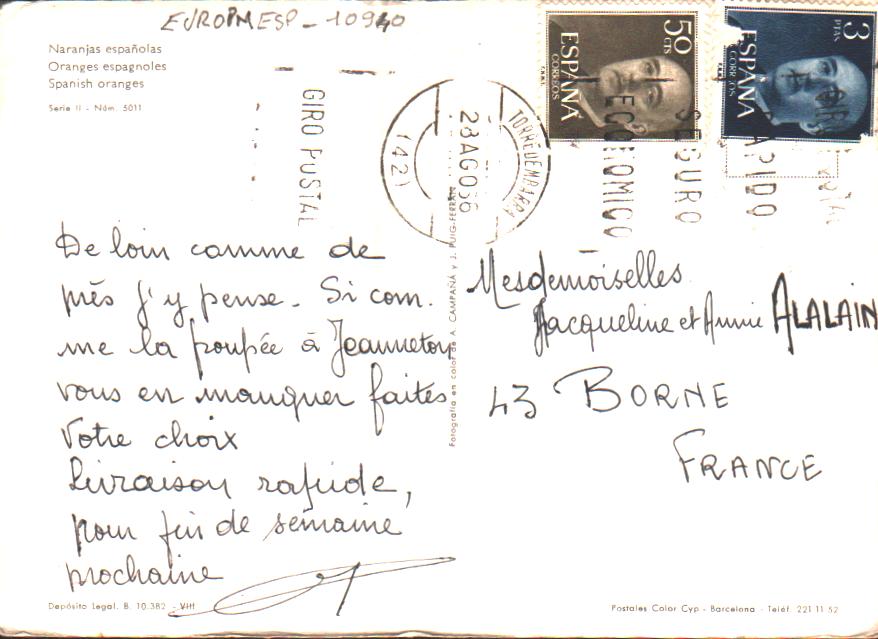 EUROPMESP - 10940
Naranjas españolas
Oranges espagnoles
Spanish oranges
Serie II - Núm. 5011
GIRO POSTAL
TORREDEMBARRA
28 AGO 66
(42)
50 CTS
ESPAÑA
CORREOS
3 PTAS
ESPAÑA
CORREOS
ECONOMICO
SEGURO
RAPIDO
De loin comme de
près j'y pense. Si com.
me la poupée à Jeanneton
vous en manquer faites
votre choix
Livraison rapide,
pour fin de semaine
prochaine
Mesdemoiselles
Jacqueline et Annie ALALAIN
43 BORNE
FRANCE
Fotografía en color de A. CAMPAÑÁ y J. PUIG-FERRÁN
Depósito Legal. B. 10.382 - VIII
Postales Color Cyp - Barcelona - Teléf. 221 11 52